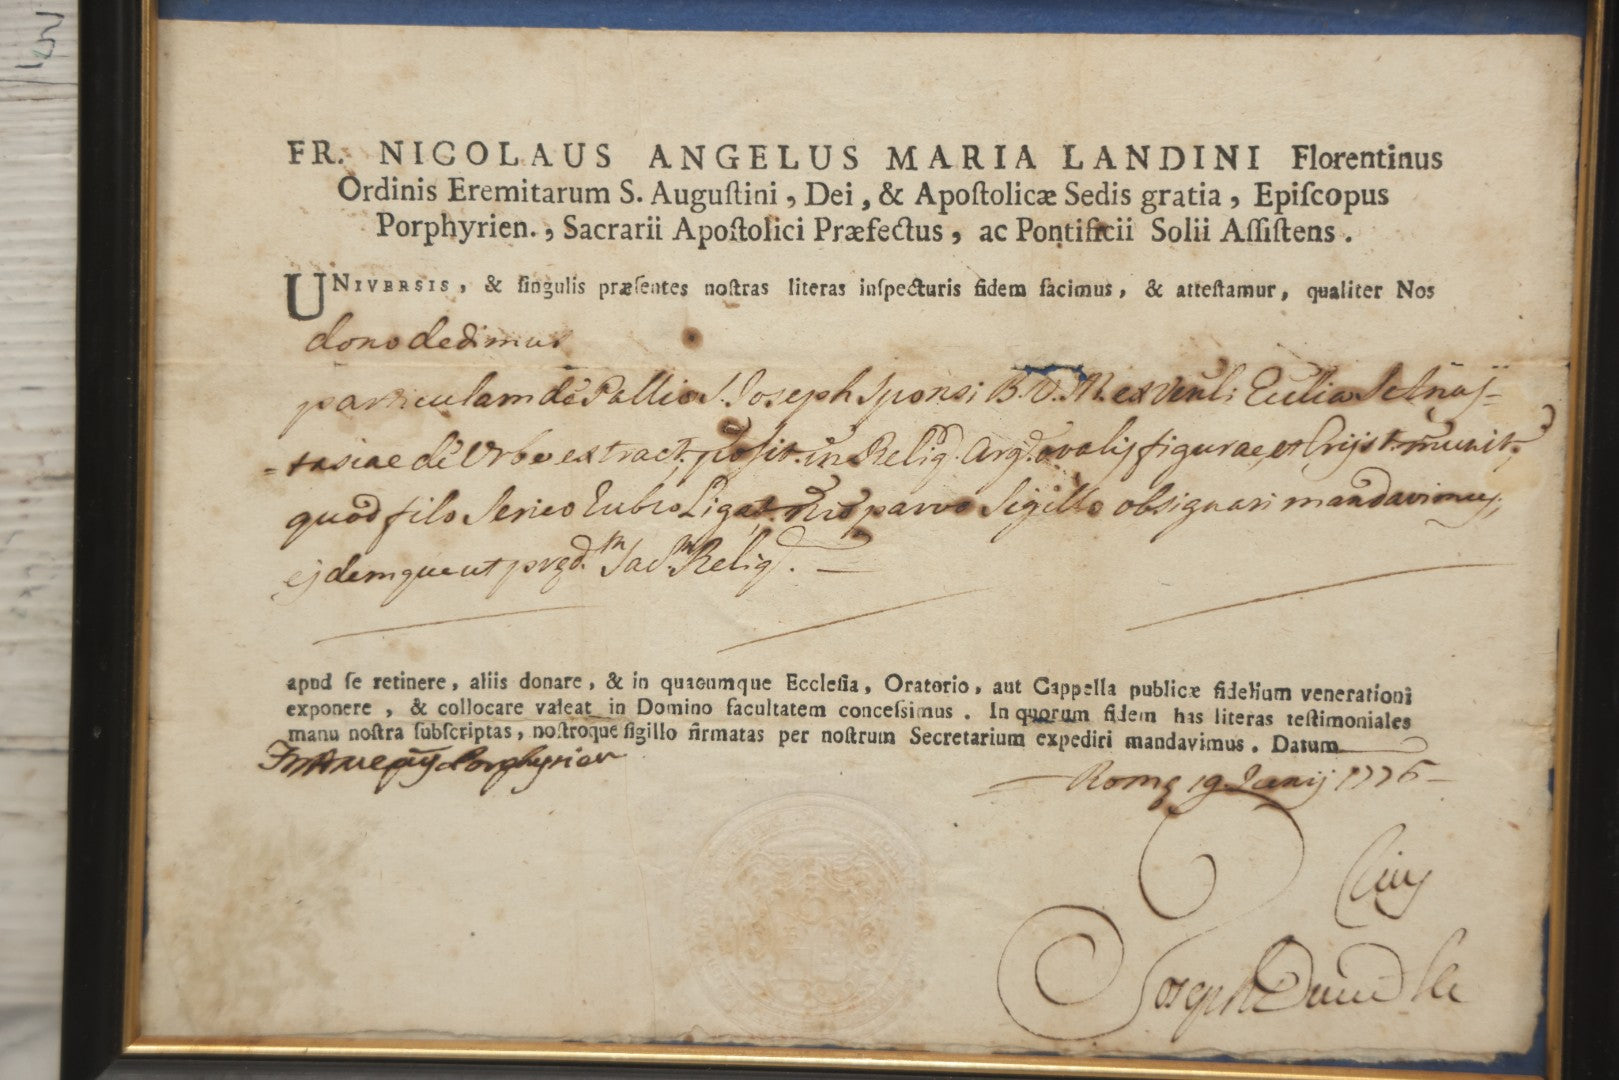 FR. NICOLAUS ANGELUS MARIA LANDINI Florentinus
Ordinis Eremitarum S. Auguſtini , Dei , & Apoſtolicæ Sedis gratia , Epiſcopus
Porphyrien. , Sacrarii Apoſtolici Præfectus , ac Pontificii Solii Aſſiſtens .
UNIVERSIS , & ſingulis præſentes noſtras literas inſpecturis fidem facimus , & atteſtamur , qualiter Nos
dono dedimus
particulam de Pallio S. Joseph Sponsi B. V. M. ex Ecclia S. Anas-
-tasiae de Urbe extract. posit. in Reliq. Arg. ovalis figurae, et Cryst. munit.
quod filo Serico rubro Ligat. parvo Sigillo obsignari mandavimus,
ejdemque ut præd. Sac. Reliq. —
apud ſe retinere , aliis donare , & in quacumque Eccleſia , Oratorio , aut Cappella publicæ fidelium venerationi
exponere , & collocare valeat in Domino facultatem conceſſimus . In quorum fidem has literas teſtimoniales
manu noſtra ſubſcriptas , noſtroque ſigillo firmatas per noſtrum Secretarium expediri mandavimus . Datum
Porphyrien
Romę 19. Junij 1776
Joseph